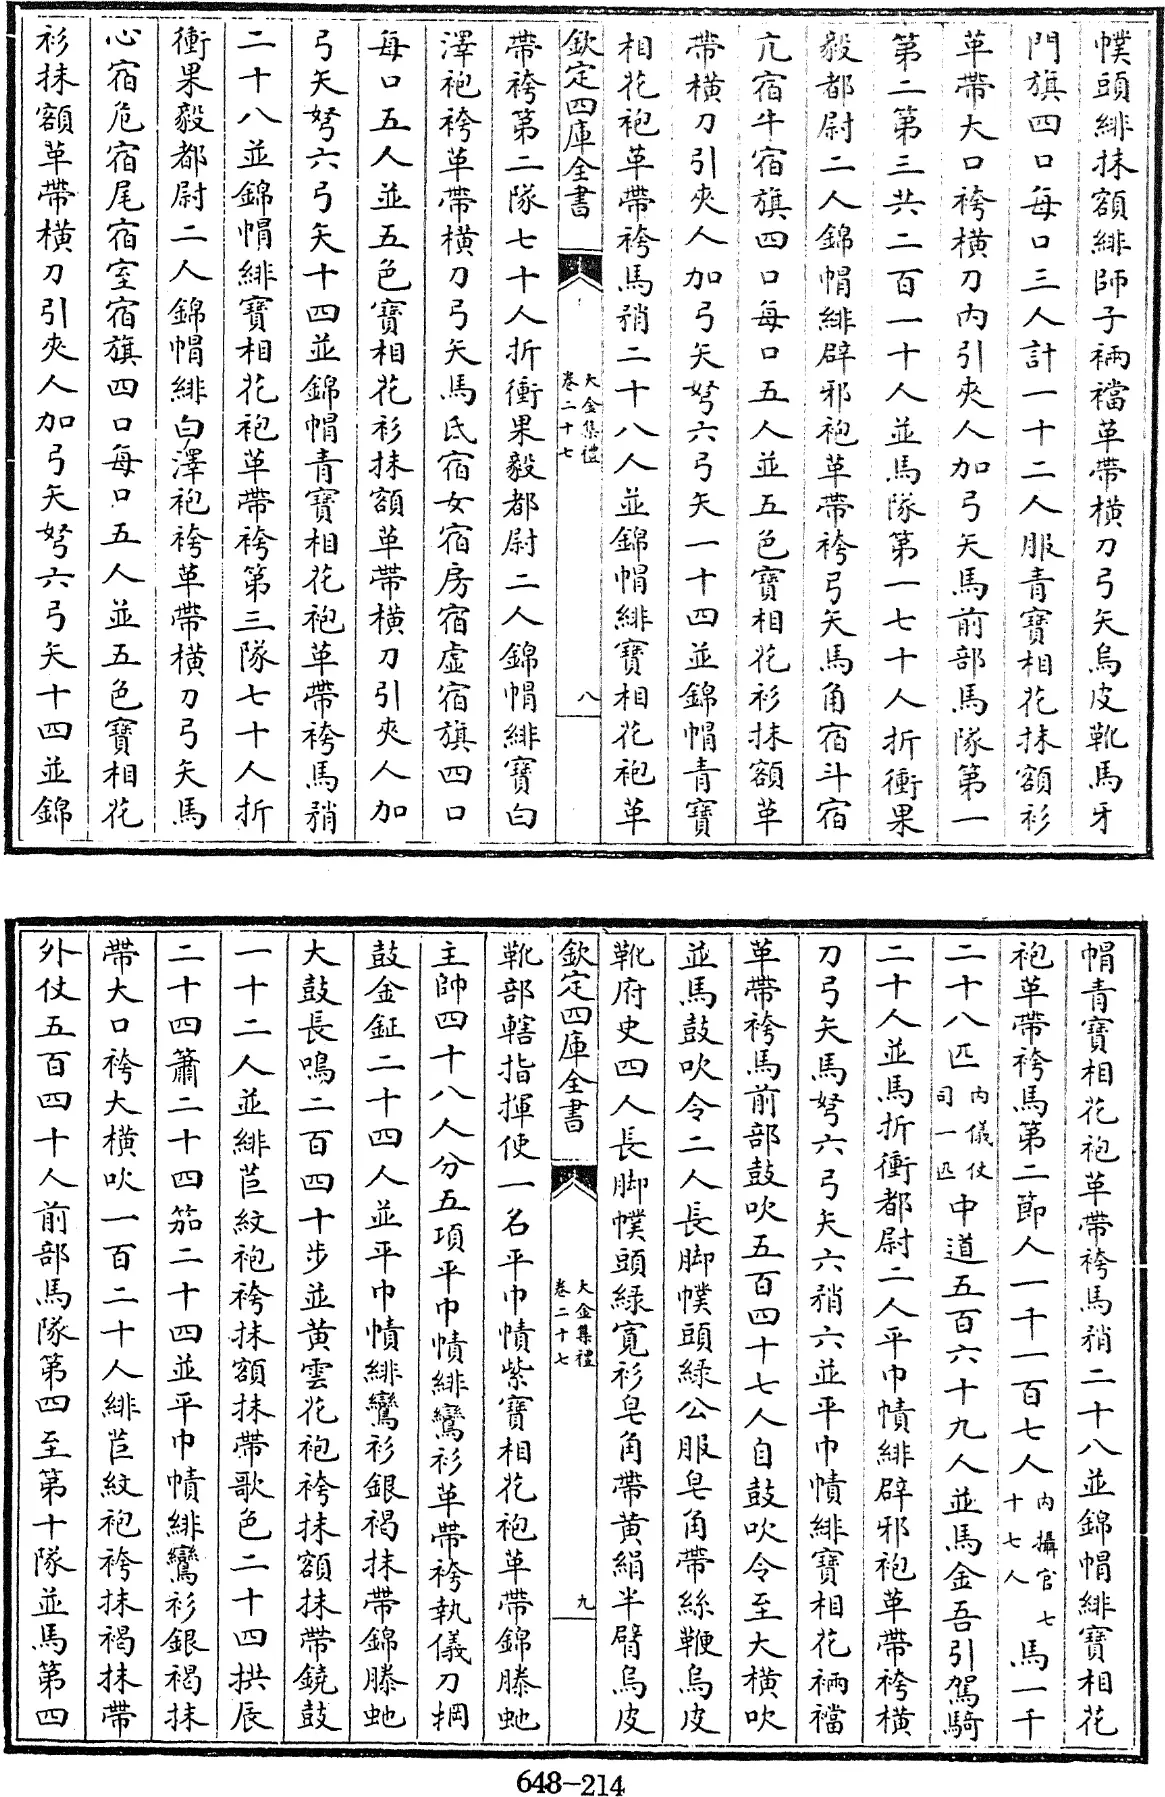 幞頭緋抹額緋師子裲襠革帶橫刀弓矢烏皮靴馬牙
門旗四口每口三人計一十二人服青寶相花抹額衫
革帶大口袴橫刀内引夾人加弓矢馬前部馬隊第一
第二第三共二百一十人並馬隊第一七十人折衝果
毅都尉二人錦帽緋辟邪袍革帶袴弓矢馬角宿斗宿
亢宿牛宿旗四口每口五人並五色寶相花衫抹額革
帶橫刀引夾人加弓矢弩六弓矢一十四並錦帽青寶
相花袍革帶袴馬矟二十八人並錦帽緋寶相花袍革
欽定四庫全書
大金集禮
卷二十七
八
帶袴第二隊七十人折衝果毅都尉二人錦帽緋寶白
澤袍袴革帶橫刀弓矢馬氐宿女宿房宿虛宿旗四口
每口五人並五色寶相花衫抹額革帶橫刀引夾人加
弓矢弩六弓矢十四並錦帽青寶相花袍革帶袴馬矟
二十八並錦帽緋寶相花袍革帶袴第三隊七十人折
衝果毅都尉二人錦帽緋白澤袍袴革帶橫刀弓矢馬
心宿危宿尾宿室宿旗四口每口五人並五色寶相花
衫抹額革帶橫刀引夾人加弓矢弩六弓矢十四並錦
帽青寶相花袍革帶袴馬矟二十八並錦帽緋寶相花
袍革帶袴馬第二節人一千一百七人内攝官七十七人馬一千
二十八匹内儀仗司一匹中道五百六十九人並馬金吾引駕騎
二十人並馬折衝都尉二人平巾幘緋辟邪袍革帶袴橫
刀弓矢馬弩六弓矢六矟六並平巾幘緋寶相花裲襠
革帶袴馬前部鼓吹五百四十七人自鼓吹令至大橫吹
並馬鼓吹令二人長脚幞頭緑公服皂角帶絲鞭烏皮
靴府史四人長脚幞頭緑寬衫皂角帶黄絹半臂烏皮
欽定四庫全書
大金集禮
卷二十七
九
靴部轄指揮使一名平巾幘紫寶相花袍革帶錦螣虵
主帥四十八人分五項平巾幘緋鸞衫革帶袴執儀刀掆
鼓金鉦二十四人並平巾幘緋鸞衫銀褐抹帶錦螣虵
大鼓長鳴二百四十步並黄雲花袍袴抹額抹帶鐃鼓
一十二人並緋苣紋袍袴抹額抹帶歌色二十四拱辰
二十四簫二十四笳二十四並平巾幘緋鸞衫銀褐抹
帶大口袴大橫吹一百二十人緋苣紋袍袴抹褐抹帶
外仗五百四十人前部馬隊第四至第十隊並馬第四
648-214